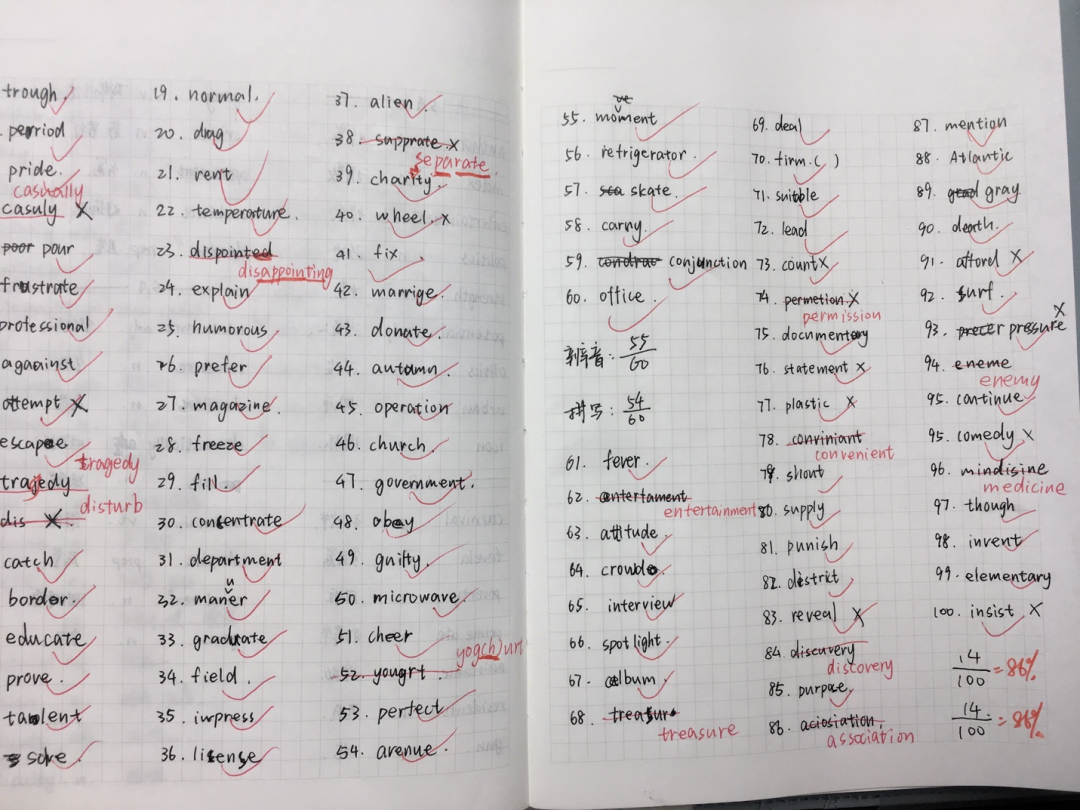 trough.
perriod
pride.
casually
casuly X
poor pour
frustrate
professional
against
attempt X
escapee
tragedy
tragedy
disturb
dis X
catch
border.
educate
prove.
talent
solve
19. normal.
20. drag
21. rent
22. temperature.
23. dispointed
disappointing
24. explain
25. humorous
26. prefer
27. magazine.
28. freeze
29. fill.
30. concentrate
31. department
u
32. maner
33. graduate
34. field.
35. impress
36. license
37. alien
38. supprate X
separate.
39. charity.
40. wheel. X
41. fix
42. marrige.
43. donate.
44. autumn.
45. operation
46. church.
47. government.
48. obey
49. guilty.
50. microwave.
51. cheer
yog(h)urt
52. yougrt
53. perfect
54. avenue.
55. moment
56. refrigerator.
57. sca skate.
58. carry.
59. condrac conjunction
60. office.
55/60
拼写: 54/60
61. fever.
62. entertament
entertainment
63. attitude.
64. crowd
65. interview
66. spotlight.
67. album
68. treasur
treasure
69. deal
70. firm. ( )
71. suitble
72. lead
73. count X
74. permetion. X
permission
75. documentary
76. statement X
77. plastic X
78. conviniant
convenient
79. shout
80. supply
81. punish
82. district
83. reveal X
84. discuvery
discovery
85. purpose
86. aciosiation.
association
87. mention
88. Atlantic
89. gray
90. death.
91. afford X
92. surf.
X
93. pressure
94. eneme
enemy
95. continue
95. comedy X
96. mindisine
medicine
97. though
98. invent
99. elementary
100. insist X
14/100 = 86%
14/100 = 86%